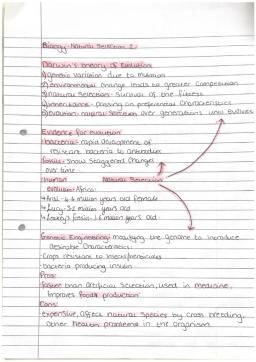 Biology- Natural Selection 2:
Darwin's theory of Evolution
1) genetic variation due to mutation
2) environmental change leads to greater competition
3) natural selection- survival of the fittest
4) inheritance- passing on preferential characteristics
5) evolution- natural selection over generations until evolves
Evidence for evolution
bacteria- rapid development of
resistant bacteria to antibodies
fossils- show staggered changes
over time
Human
evolution: Africa:
↳ Ardi- 4.4 million years old female
↳ Lucy- 3.2 million years old
↳ Leakey's fossils- 1.6 million years old
Natural Selection
Genetic Engineering: modifying the genome to introduce
desirable characteristics:
- crops resistant to insects/pesticides
- bacteria producing insulin
Pros:
- faster than artificial selection, used in medicine,
improves food production
Cons:
- expensive, affects natural species by cross breeding,
other health problems in the organism